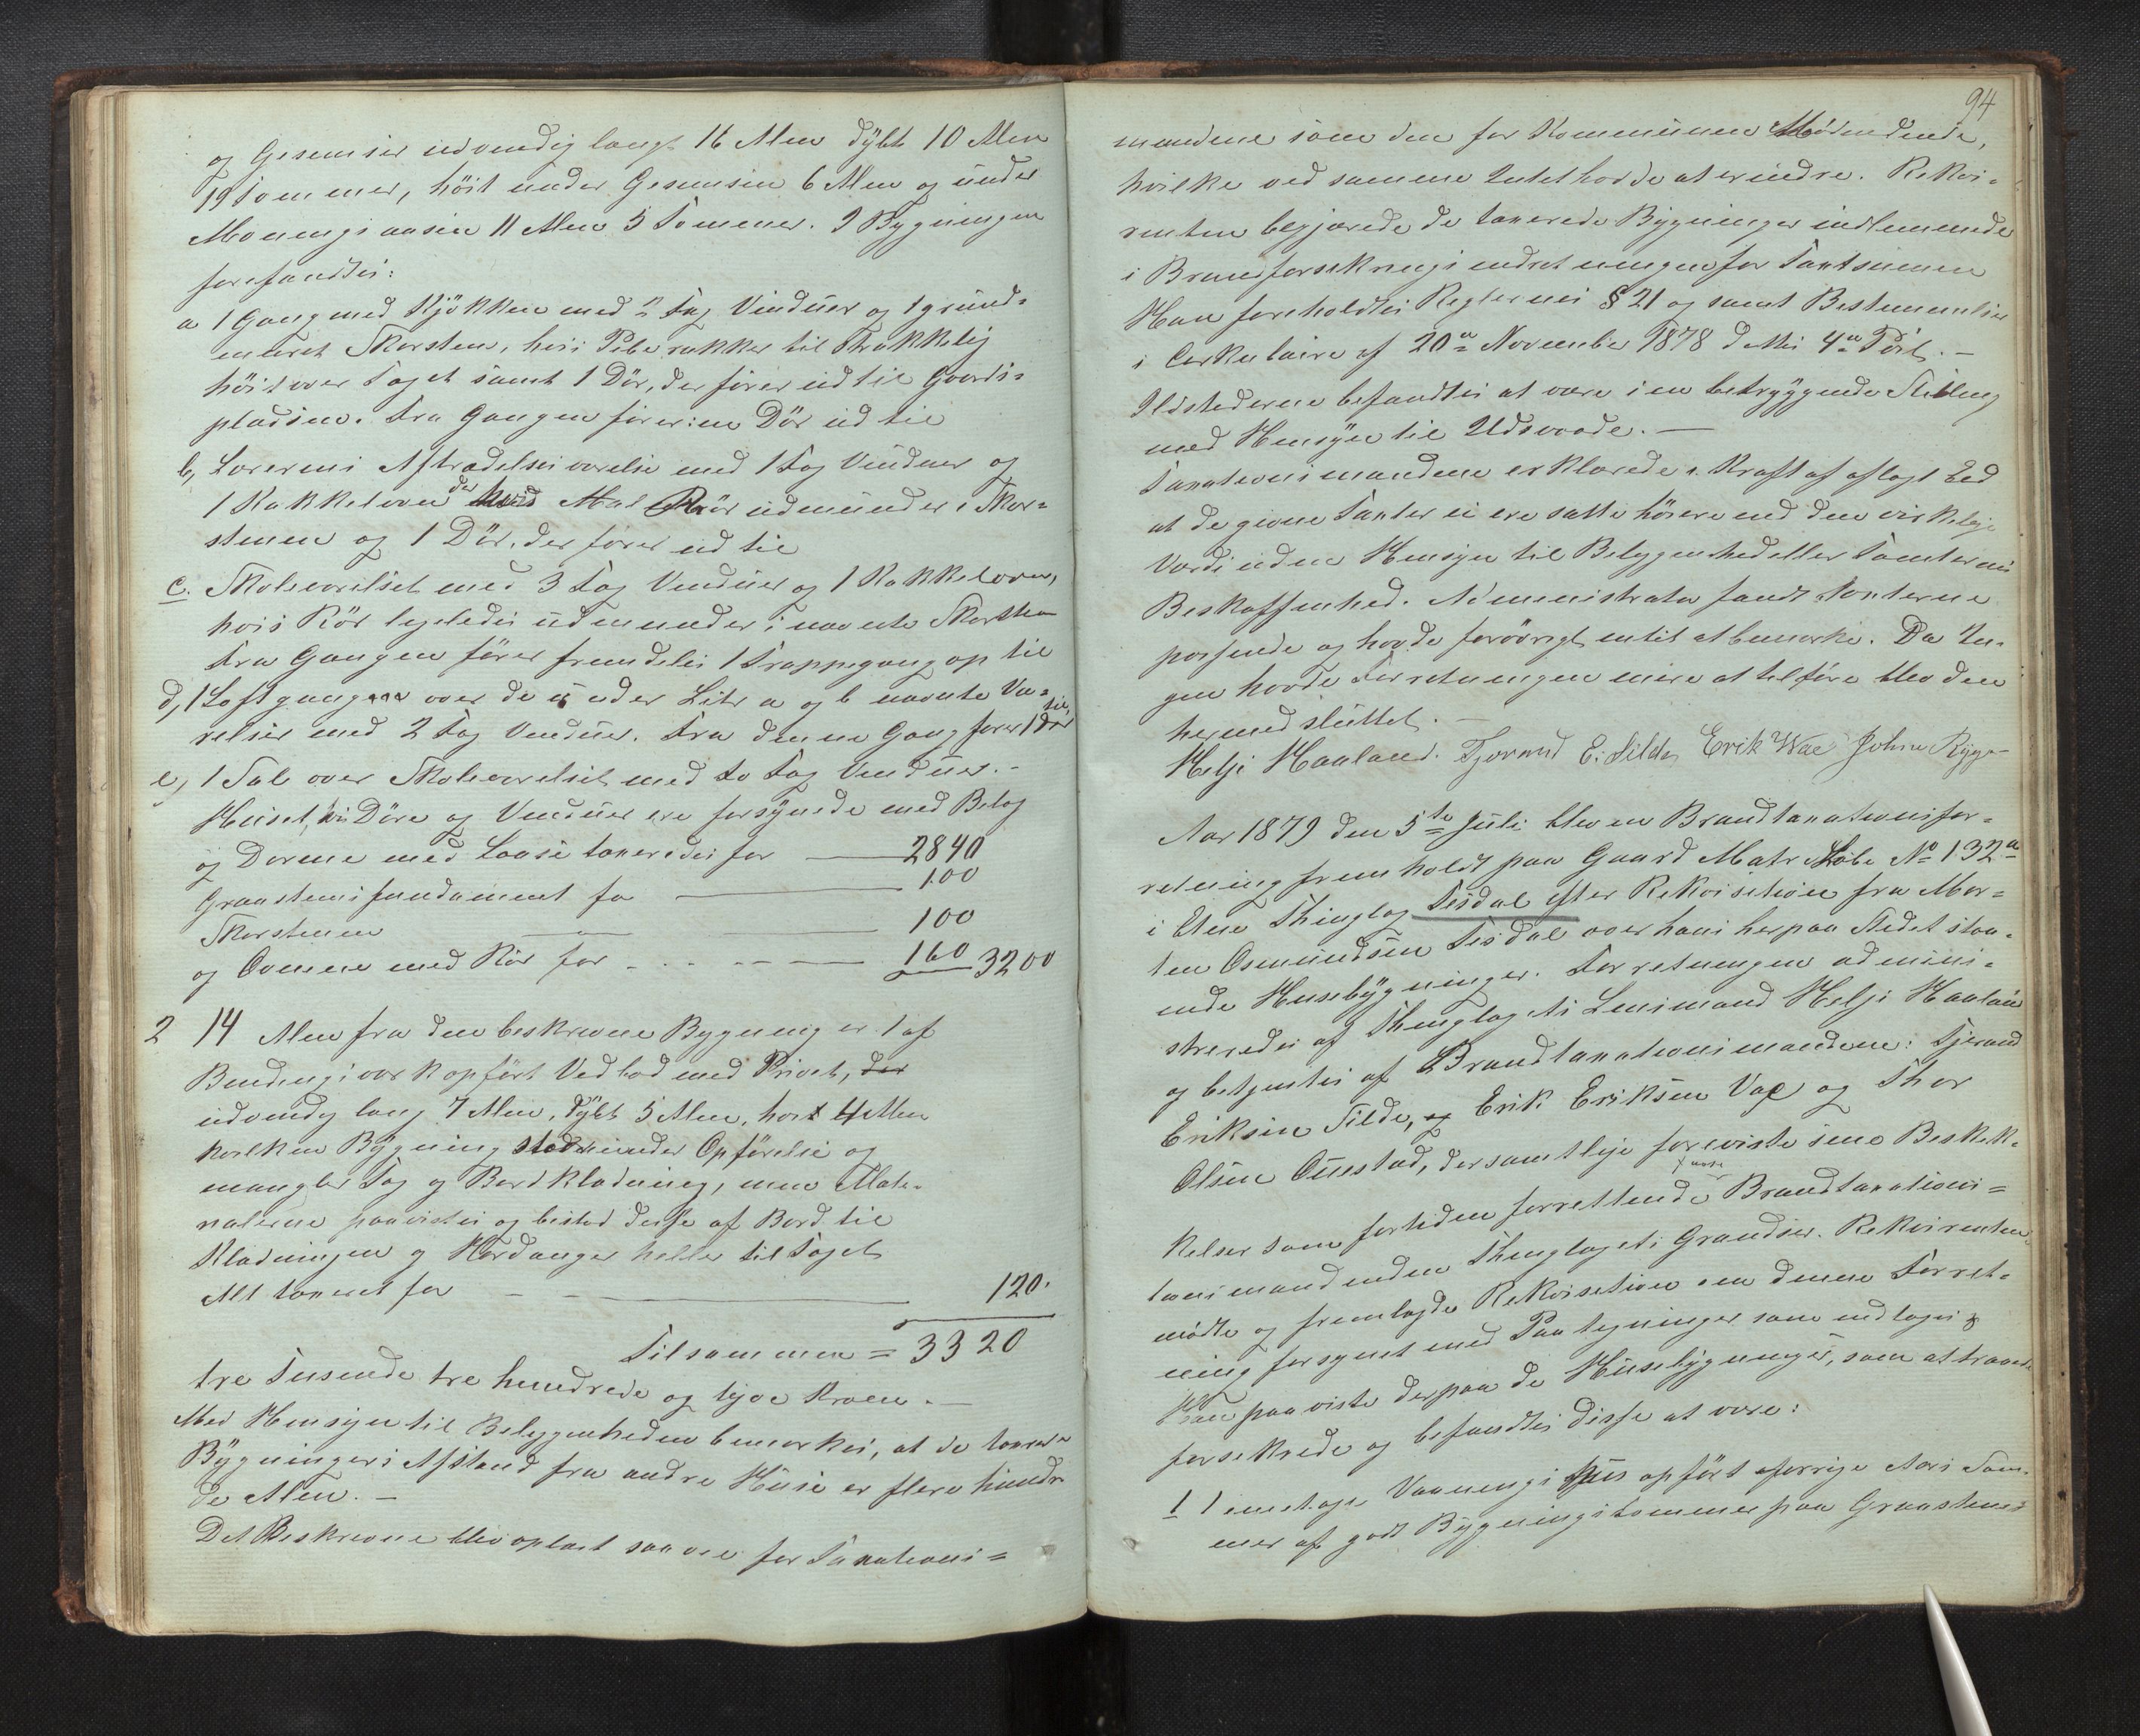 og Gesemser udvendig langt 16 Alen dybt 10 Alen
19 Tommer, høit under Gesemsen 6 Alen og under
Mønings aasen 11 Alen 5 Tommer. I Bygningen
forefandtes:
a 1 Gang med Kjøkken med 2 Fag Vinduer og 1 grund-
muret Skorsten, hvis Pibe rækker til strækkelig
høit over Taget samt 1 Dør, der fører ud til Gaards-
pladsen. Fra Gangen fører en Dør ud til
b, Lærerens Aftrædelsesværelse med 1 Fag Vinduer og
1 Kakkelovn der Rør udmunder i Skor-
stenen og 1 Dør, der fører ud til
c. Skoleværelset med 3 Fag Vinduer og 1 Kakkelovn,
hvis Rør ligeledes udmunder i nævnte Skorsten
Fra Gangen fører fremdeles 1 Trappegang op til
d, 1 Loftgang over de under Litr a og b nævnte Væ-
relser med 2 Fag Vinduer. Fra denne Gang fører 1 Dør til
e, 1 Sal over Skoleværelset med to Fag Vinduer. -
Huset, hvis Døre og Vinduer ere forsynede med Beslag
og Dørene med Laase taxeredes for 2840
Graastensfundament for 100
Skorstenen 100
og Ovnene med Rør for 160 3200
2 14 Alen fra den beskrevne Bygning er 1 af
Bindingsværk opført Vedbod med Privet, der
udvendig lang 7 Alen, dybt 5 Alen, høit 4 Alen
hvilken Bygning stod under Opførelse og
mangler Tag og Bordklædning, men Mate-
rialerne paavistes og bestod disse af Bord til
Klædningen og Hardanger heller til Taget
Alt taxeret for 120.
Tilsammen = 3320
tre Tusende tre hundrede og tyve Kroner. -
Med Hensyn til Beliggenheden bemærkes, at de taxerede
Bygningers Afstand fra andre Huse er flere hundre
de Alen. -
Det Beskrevne blev oplæst saavel for Taxations-
94
mændene som den for Kommunen Mødende,
hvilke ved samme Intet havde at erindre. Rekvi-
renten begjærede de taxerede Bygninger indlemmede
i Brandforsikrings indretningen for Taxtsummen
Han foreholdtes Reglernes § 21 og samt Bestemmelser
i Cirkulaire af 20de November 1878 dettes 4de Post. -
Ildstederne befandtes at være i en betryggende Stilling
med Hensyn til Ildsvaade. -
Taxationsmændene erklærede i Kraft af aflagt Ed
at de givne Taxter ei ere satte høiere end den virkelige
Værdi uden Hensyn til Beliggenhed eller Tomternes
Beskaffenhed. Administrator fandt Taxterne
passende og havde forøvrigt intet at bemærke. Da In-
gen havde Forretningen mere at tilføre blev den
hermed sluttet. -
Helje Haaland. Tjerand E. Silde Erik Wae John Rygg
Aar 1879 den 5te Juli blev en Brandtaxationsfor-
retning fremholdt paa Gaard Matr Løbe No 132a
i Etne Thinglag Tesdal efter Rekvisition fra Mor-
ten Osmundsen Tesdal over hans herpaa Stedet staa-
ende Husebygninger. Forretningen admini-
streredes af Thinglagets Lensmand Helje Haaland
og betjentes af Brandtaxationsmændene: Tjerand
Eriksen Silde, og Erik Eriksen Vae og Thor
Olsen Øvrestad, der samtlige foreviste sine Beskik-
kelser som fortiden forrettende faste Brandtaxations-
tionsmænd inden Thinglagets Grændser. Rekvirenten
mødte og fremlagde Rekvisition om denne Forret-
ning forsynet med Paategninger som indtages
Han paaviste derpaa de Husebygninger, som attraaes
forsikrede og befandtes disse at være:
1 1 eenetages Vaanings Hus opført forrige Aars Som-
mer af godt Bygningstømmer paa Graastens